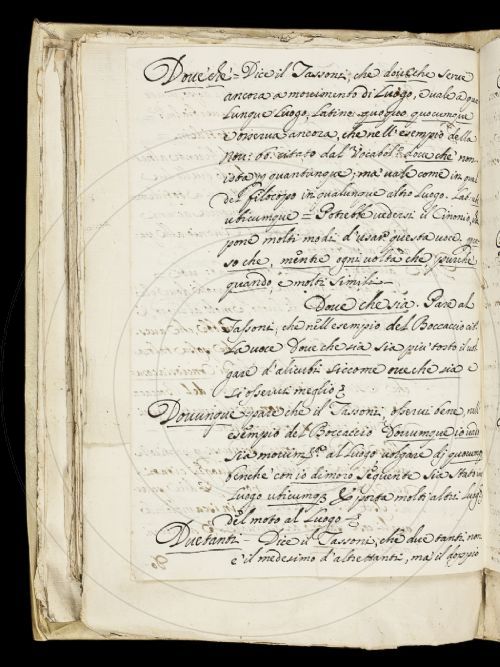 Dove che = Dice il Tassoni, che dove che serve
ancora a movimento di Luogo, e vale a qua
lunque Luogo, Latino quoquo quocumque
e osserva ancora, che nell' esempio della
Nov: 66. citato dal Vocabol:º dove che non
sta quantunque; ma vale come in quel
del filocopo in qualunque altro Luogo. Lat:
ubicumque = Potrebbe vedersi il Cinonio,
pone molti modi d'usar questa voce.
so che, mentre ogni volta che, purche
quando, e molti simili
Dove che sia. Pare al
Tassoni, che nell' esempio del Boccaccio cit.
La voce Dove che sia sia più tosto il vol
gare d'alicubi siccome ove che sia e
si osservi meglio
Dovunque = pare che il Tassoni, osservi bene, nell'
esempio del Boccaccio Dovunque io
sia al Luogo volgare di quocumq
benche con io dimoro seguente sia stato in
Luogo ubicumq; porta molti altri Luog
del moto al Luogo
Due tanti = Dice il Tassoni, che due tanti non
è il medesimo d'altrettanti, ma il doppio